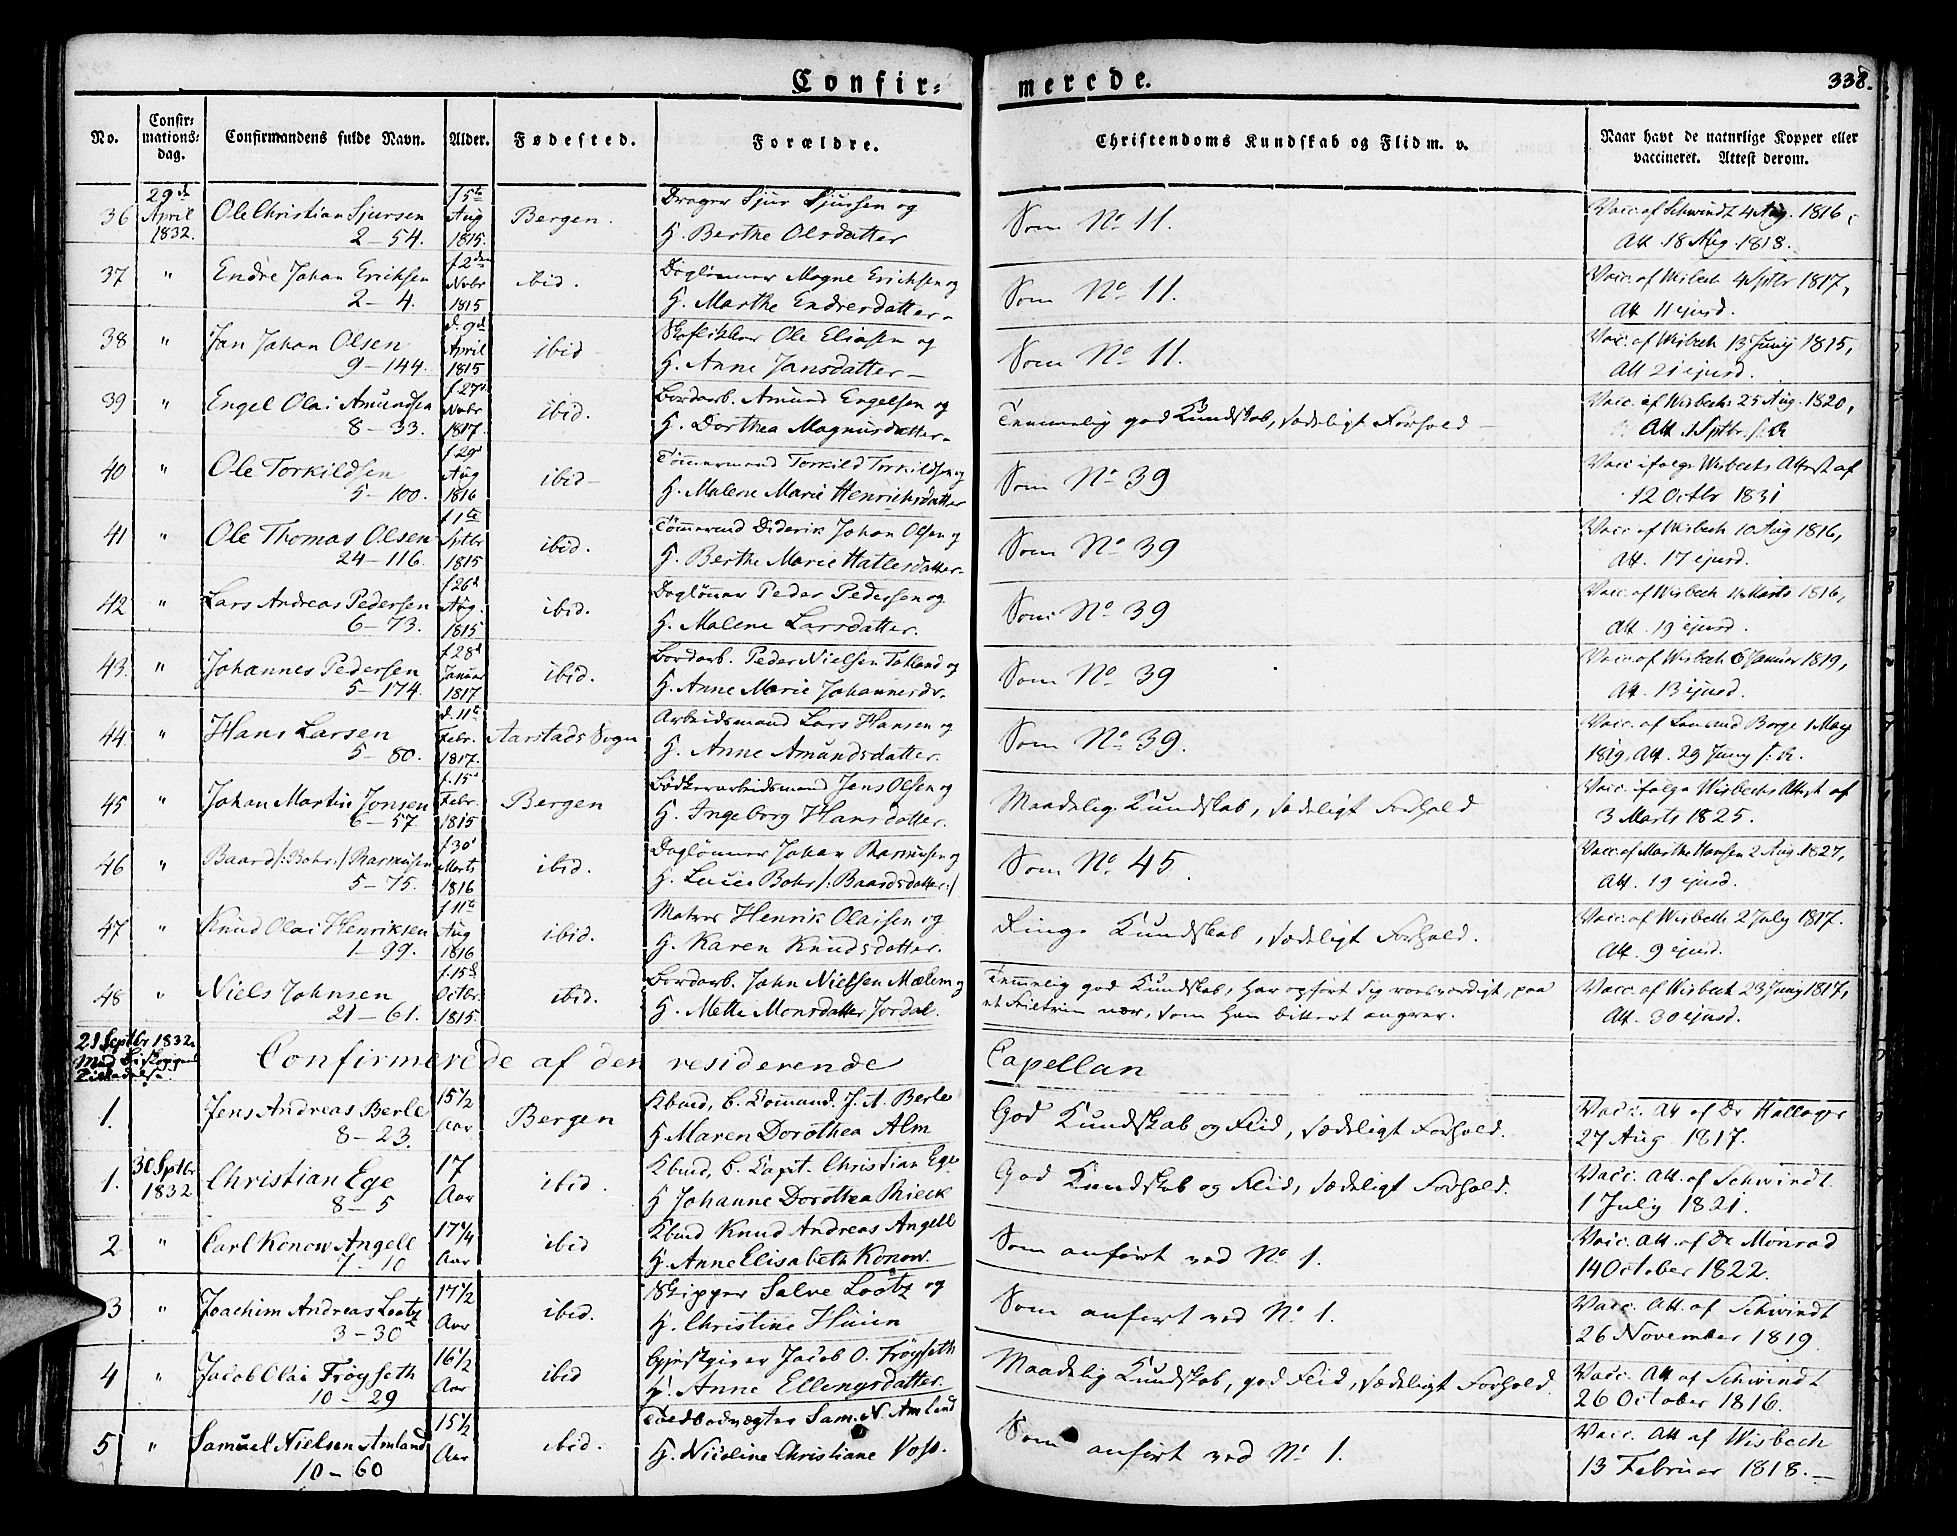 Confir= merede. 338.
No. Confirmations-dag. Confirmandens fulde Navn. Alder. Fødested. Forældre. Christendoms Kundskab og Flid m. v. Naar havt de naturlige Kopper eller vaccineret. Attest derom.
36 29d April 1832. Ole Christian Sjursen 2–54. f 5te Aug 1815. Bergen. Drager Sjur Sjursen og H. Berthe Olsdatter Som No 11. Vacc. af Schwindt 4 Aug. 1816, Att. 18 Aug. 1818.
37 " Endre Johan Erichsen 2–4. f 2den Novbr 1815 ibid. Daglønner Magne Erichsen og H. Marthe Endresdatter. Som No 11. Vacc. af Wisbech 4 Sptbr 1817, Att 11 ejusd.
38 " Jan Johan Olsen 9–144. d. 9d April 1815 ibid Ole Eliasen og H. Anne Jansdatter Som No 11. Vacc. af Wisbech 13 Junij 1815, Att 21 ejusd.
39 " Engel Olai Amundsen 8–33. f 27d Novbr 1817. ibid. Bordarb. Amund Engelsen og H. Dorthea Magnusdatter. Temmelig god Kundskab, sædeligt Forhold Vacc. af Wisbech 25 Aug. 1820, Att. 1 Sptbr. s. A
40 " Ole Torkildsen 5–100. f 29d Aug 1816 ibid Tømmermand Torkild Torkildsen og H. Malene Marie Henrichsdatter Som No 39 Vacc ifølge Wisbechs Attest af 12 Octbr 1831
41 " Ole Thomas Olsen 24–116. f 1te Sptbr 1815 ibid. Tømmermd Diderik Johan Olsen og H. Berthe Marie Hatlesdatter. Som No 39 Vacc. af Wisbech 10 Aug 1816, Att. 17 ejusd.
42 " Lars Andreas Pedersen 6–73. f 26d Aug. 1815 ibid. Dagløner Peder Pedersen og H. Malene Larsdatter. Som No 39 Vacc. af Wisbech Marts 1816, Att. 19 ejusd.
43. " Johannes Pedersen 5–174. f 28d Januar 1817 ibid. Bordarb. Peder Nielsen Tolland og H. Anne Marie Johannesdr. Som No 39 Vacc. af Wisbech 6 Januar 1819, Att. 13 ejusd.
44 " Hans Larsen 5–80. d. 11te Febr. 1817. Aarstads Sogn Arbeidsmand Lars Hansen og H. Anne Amundsdatter. Som No 39. Vacc. af Borge 1 May 1819, Att. 29 Juny s. A.
45 " Johan Martin Jonsen 6–57. f. 15d Febr. 1815 Bergen Bødkerarbeidsmand Jens Olsen og H. Ingeborg Hansdatter. Maadelig Kundskab, sædeligt Forhold Vacc. ifølge Wisbechs Attest af 3 Marts 1825.
46 " Baard /: Bohr :/ Rasmusen 5–75. f 30d Marts 1816 ibid. Daglønner Johan Rasmusen og H. Lucie Bohr /: Baardsdatter :/ Som No 45 Vacc. af Marthe Hansen 2 Aug. 1827, Att. 19 ejusd.
47 " Knud Olai Henriksen 1–99. f 11te Aug 1816 ibid. Matros Henrik Olaisen og H. Karen Knudsdatter. Ringe Kundskab, sædeligt Forhold. Vacc. af Wisbech 2 July 1817. Att. 9 ejusd.
48 " Niels Johnsen 21–61. f. 15d Octbr. 1815 ibid. Bordarb. John Nielsen Mælem og H. Mette Monsdatter Jordal. Temmelig god Kundskab, har opført sig roesværdigt, paa et Feiltrin nær, som han bittert angrer. Vacc. af Wisbech 23 Junij 1817, Att. 30 ejusd.
21 Septbr 1832. Med Biskoppens Tilladelse. Confirmerede af den residerende Capellan
1. Jens Andreas Berle 8–23. 15 1/2 Aar Bergen Kbmd, B. Command. J. A. Berle H Maren Dorothea Alm God Kundskab og Flid, sædeligt Forhold. Vacc. Att af Dr Hallager 27 Aug 1817.
1. 30 Sptbr 1832 Christian Ege 8–5 17 Aar ibid. Kbmd, B. Capit. Christian Ege H Johanne Dorothea Rieck God Kundskab og Flid, sædeligt Forhold. Vacc. Att. af Schwindt 1 July 1821.
2 " Carl Konow Angell 7–10 17 1/4 Aar ibid Kbmd Knud Andreas Angell H. Anne Elisabeth Konow. Som anført ved No 1. Vacc. Att. af Dr Monrad 14 October 1822.
3 " Joachim Andreas Lootz 3–30 17 1/2 Aar ibid. Skipper Salve Lootz og H. Christine Som anført ved No 1. Vacc. Att. af Schwindt 26 November 1819.
4 " Jacob Olai Frøyseth 10–29 16 1/2 Aar ibid Gjestgiver Jacob O. Frøyseth H. Anne Ellengsdatter. Maadelig Kundskab, god Flid, sædeligt Forhold. Vacc. Att af Schwindt 26 October 1816.
5 " Samuel Nielsen Amland 10–60 15 1/2 Aar ibid. Sam. N. Amland H. Nicoline Christiane Voss. Som anført ved No 1. Vacc. Att af Wisbech 13 Februar 1818.